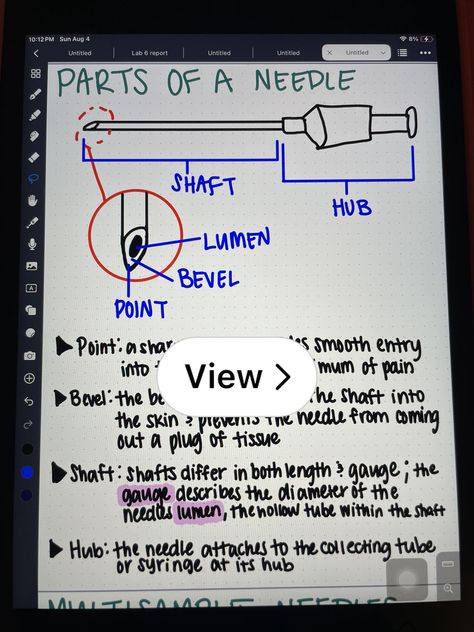 10:12 PM Sun Aug 4
8%
Untitled
Lab 6 report
Untitled
Untitled
Untitled
PARTS OF A NEEDLE
SHAFT
HUB
LUMEN
BEVEL
POINT
Point: a smooth entry
into of pain
Bevel: the shaft into
the skin & prevents the needle from coming
out a plug of tissue
Shaft: shafts differ in both length & gauge; the
gauge describes the diameter of the
needles lumen, the hollow tube within the shaft
Hub: the needle attaches to the collecting tube
or syringe at its hub
MULTISAMPLE NEEDLES
View >